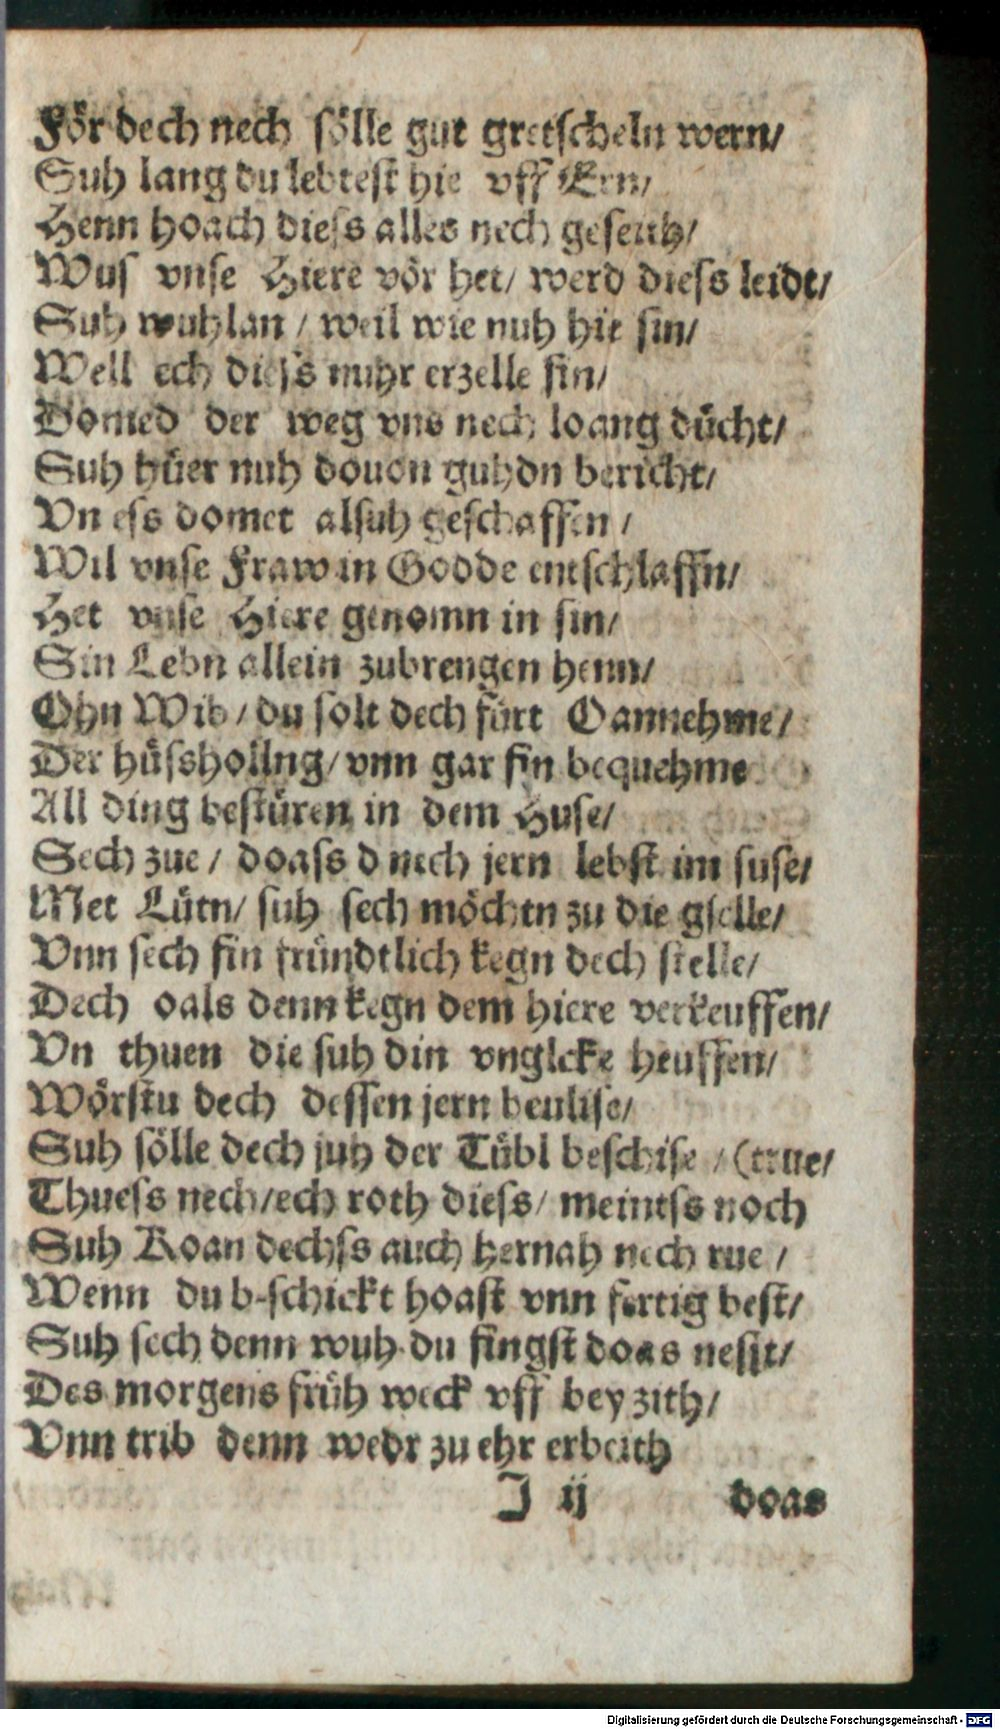 För dech nech sölle gut gretscheln wern/
Suh lang du lebtest hie vff Ern/
Henn hoach diess alles nech geseith/
Wus vnse Hiere vör het/ werd diess leidt/
Suh wuhlan / weil wie nuh hie sin/
Well ech diess nuhr erzelle fin/
Domed der weg vns nech loang dücht/
Suh hüer nuh douon guhdn bericht/
Vn ess domet alsuh geschaffen /
Wil vnse Fraw in Godde entschlaffn/
Het vnse Hiere genomn in sin/
Sin Lebn allein zubrengen henn/
Ohn Wib/ du solt dech fürt Oannehme/
Der hüsshollng/ vnn gar fin bequehme
All ding bestüren in dem Huse/
Sech zue / doass d nech jern lebst im suse/
Met Lütn/ suh sech möchtn zu die gselle/
Vnn sech fin fründtlich kegn dech stelle/
Dech oals denn kegn dem hiere verkeuffen/
Vn thuen die suh din vnglcke heuffen/
Wörstu dech dessen jern beulise/
Suh sölle dech juh der Tübl beschise / (true/
Thuess nech/ ech roth diess/ meintss noch
Suh Koan dechss auch hernah nech rue /
Wenn du b-schickt hoast vnn fertig best/
Suh sech denn wuh du fingst doas nesst/
Des morgens früh weck vff bey zith/
Vnn trib denn wedr zu ehr erbeith
J ij doas
Digitalisierung gefördert durch die Deutsche Forschungsgemeinschaft - DFG